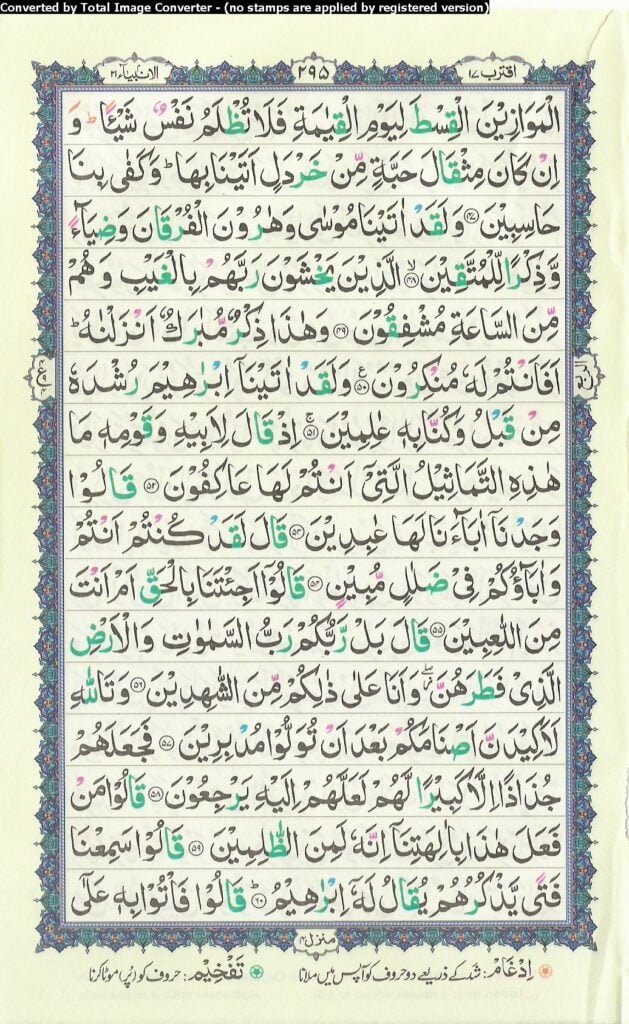 Converted by Total Image Converter - (no stamps are applied by registered version)
اقترب ١٧
٢٩٥
الانبیآء ٢١
الْمَوَازِیْنَ الْقِسْطَ لِیَوْمِ الْقِیٰمَةِ فَلَا تُظْلَمُ نَفْسٌ شَیْـًٔا ؕ وَ
اِنْ كَانَ مِثْقَالَ حَبَّةٍ مِّنْ خَرْدَلٍ اَتَیْنَا بِهَا ؕ وَكَفٰی بِنَا
حَاسِبِیْنَ ﴿٤٧﴾ وَلَقَدْ اٰتَیْنَا مُوْسٰی وَهٰرُوْنَ الْفُرْقَانَ وَضِیَآءً
وَّذِكْرًا لِّلْمُتَّقِیْنَ ﴿٤٨﴾ۙ الَّذِیْنَ یَخْشَوْنَ رَبَّهُمْ بِالْغَیْبِ وَهُمْ
مِّنَ السَّاعَةِ مُشْفِقُوْنَ ﴿٤٩﴾ وَهٰذَا ذِكْرٌ مُّبٰرَكٌ اَنْزَلْنٰهُ ؕ
اَفَاَنْتُمْ لَهٗ مُنْكِرُوْنَ ﴿٥٠﴾ۧ وَلَقَدْ اٰتَیْنَاۤ اِبْرٰهِیْمَ رُشْدَهٗ
مِنْ قَبْلُ وَكُنَّا بِهٖ عٰلِمِیْنَ ﴿٥١﴾ۚ اِذْ قَالَ لِاَبِیْهِ وَقَوْمِهٖ مَا
هٰذِهِ التَّمَاثِیْلُ الَّتِیْۤ اَنْتُمْ لَهَا عَاكِفُوْنَ ﴿٥٢﴾ قَالُوْا
وَجَدْنَاۤ اٰبَآءَنَا لَهَا عٰبِدِیْنَ ﴿٥٣﴾ قَالَ لَقَدْ كُنْتُمْ اَنْتُمْ
وَاٰبَآؤُكُمْ فِیْ ضَلٰلٍ مُّبِیْنٍ ﴿٥٤﴾ قَالُوْۤا اَجِئْتَنَا بِالْحَقِّ اَمْ اَنْتَ
مِنَ اللّٰعِبِیْنَ ﴿٥٥﴾ قَالَ بَلْ رَّبُّكُمْ رَبُّ السَّمٰوٰتِ وَالْاَرْضِ
الَّذِیْ فَطَرَهُنَّ ۖ وَاَنَا عَلٰی ذٰلِكُمْ مِّنَ الشّٰهِدِیْنَ ﴿٥٦﴾ وَتَاللّٰهِ
لَاَكِیْدَنَّ اَصْنَامَكُمْ بَعْدَ اَنْ تُوَلُّوْا مُدْبِرِیْنَ ﴿٥٧﴾ فَجَعَلَهُمْ
جُذٰذًا اِلَّا كَبِیْرًا لَّهُمْ لَعَلَّهُمْ اِلَیْهِ یَرْجِعُوْنَ ﴿٥٨﴾ قَالُوْا مَنْ
فَعَلَ هٰذَا بِاٰلِهَتِنَاۤ اِنَّهٗ لَمِنَ الظّٰلِمِیْنَ ﴿٥٩﴾ قَالُوْا سَمِعْنَا
فَتًی یَّذْكُرُهُمْ یُقَالُ لَهٗۤ اِبْرٰهِیْمُ ﴿٦٠﴾ؕ قَالُوْا فَاْتُوْا بِهٖ عَلٰۤی
منزل ٤
اِدْغَام: شد کے ذریعے دو حروف کو آپس میں ملانا
تَفْخِیْم: حروف کو پُر یعنی موٹا کرنا